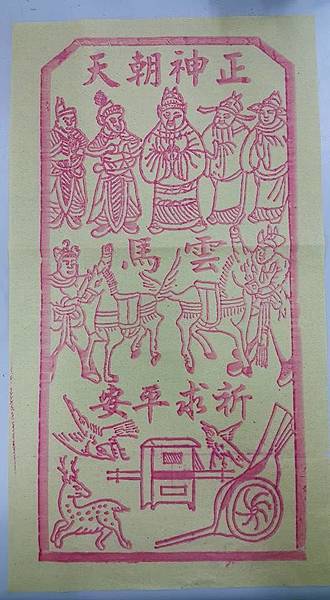 正神朝天
雲馬
祈求平安